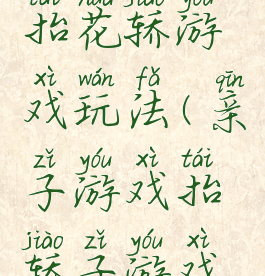 tái huā jiào yóu
抬花轿游
xì wán fǎ qīn
戏玩法(亲
zǐ yóu xì tái
子游戏抬
jiào zǐ yóu xì
轿子游戏